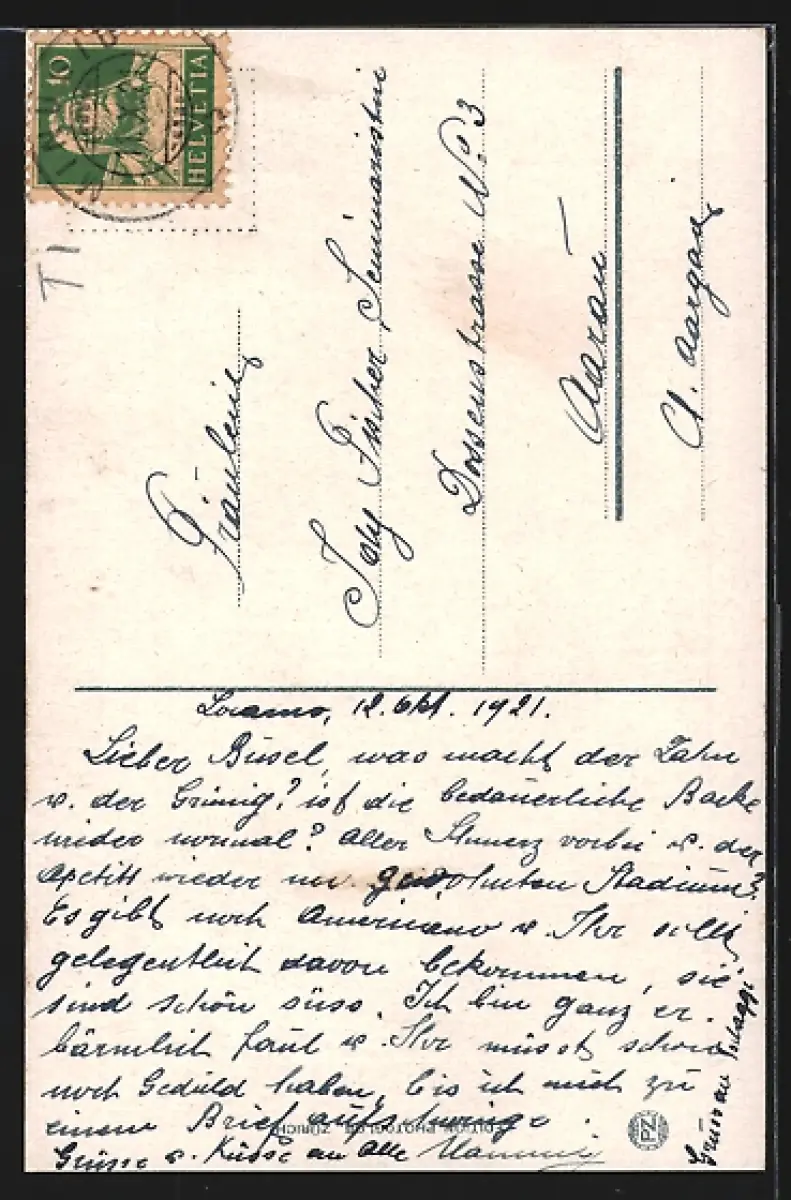 10
HELVETIA
TI
Fräulein
Fischer, Seminaristin
Dossenstrasse No. 3
Aarau
Ct. Aargau
Locarno, 12. Okt. 1921.
Lieber Büsel, was macht der Zahn
u. der Grinig? ist die bedauerliche Backe
wieder normal? Aller Schmerz vorbei u. der
Apetitt wieder im gewohnten Stadium?
Es gibt noch Americano u. Ihr sollt
gelegentlich davon bekommen, sie
sind schön süss. Ich bin ganz er-
bärmlich faul u. Ihr müsst schon
noch Geduld haben, bis ich mich zu
einem Brief aufschwinge.
Grüsse u. Küsse an Alle
Gruss an
PZ
ZÜRICH